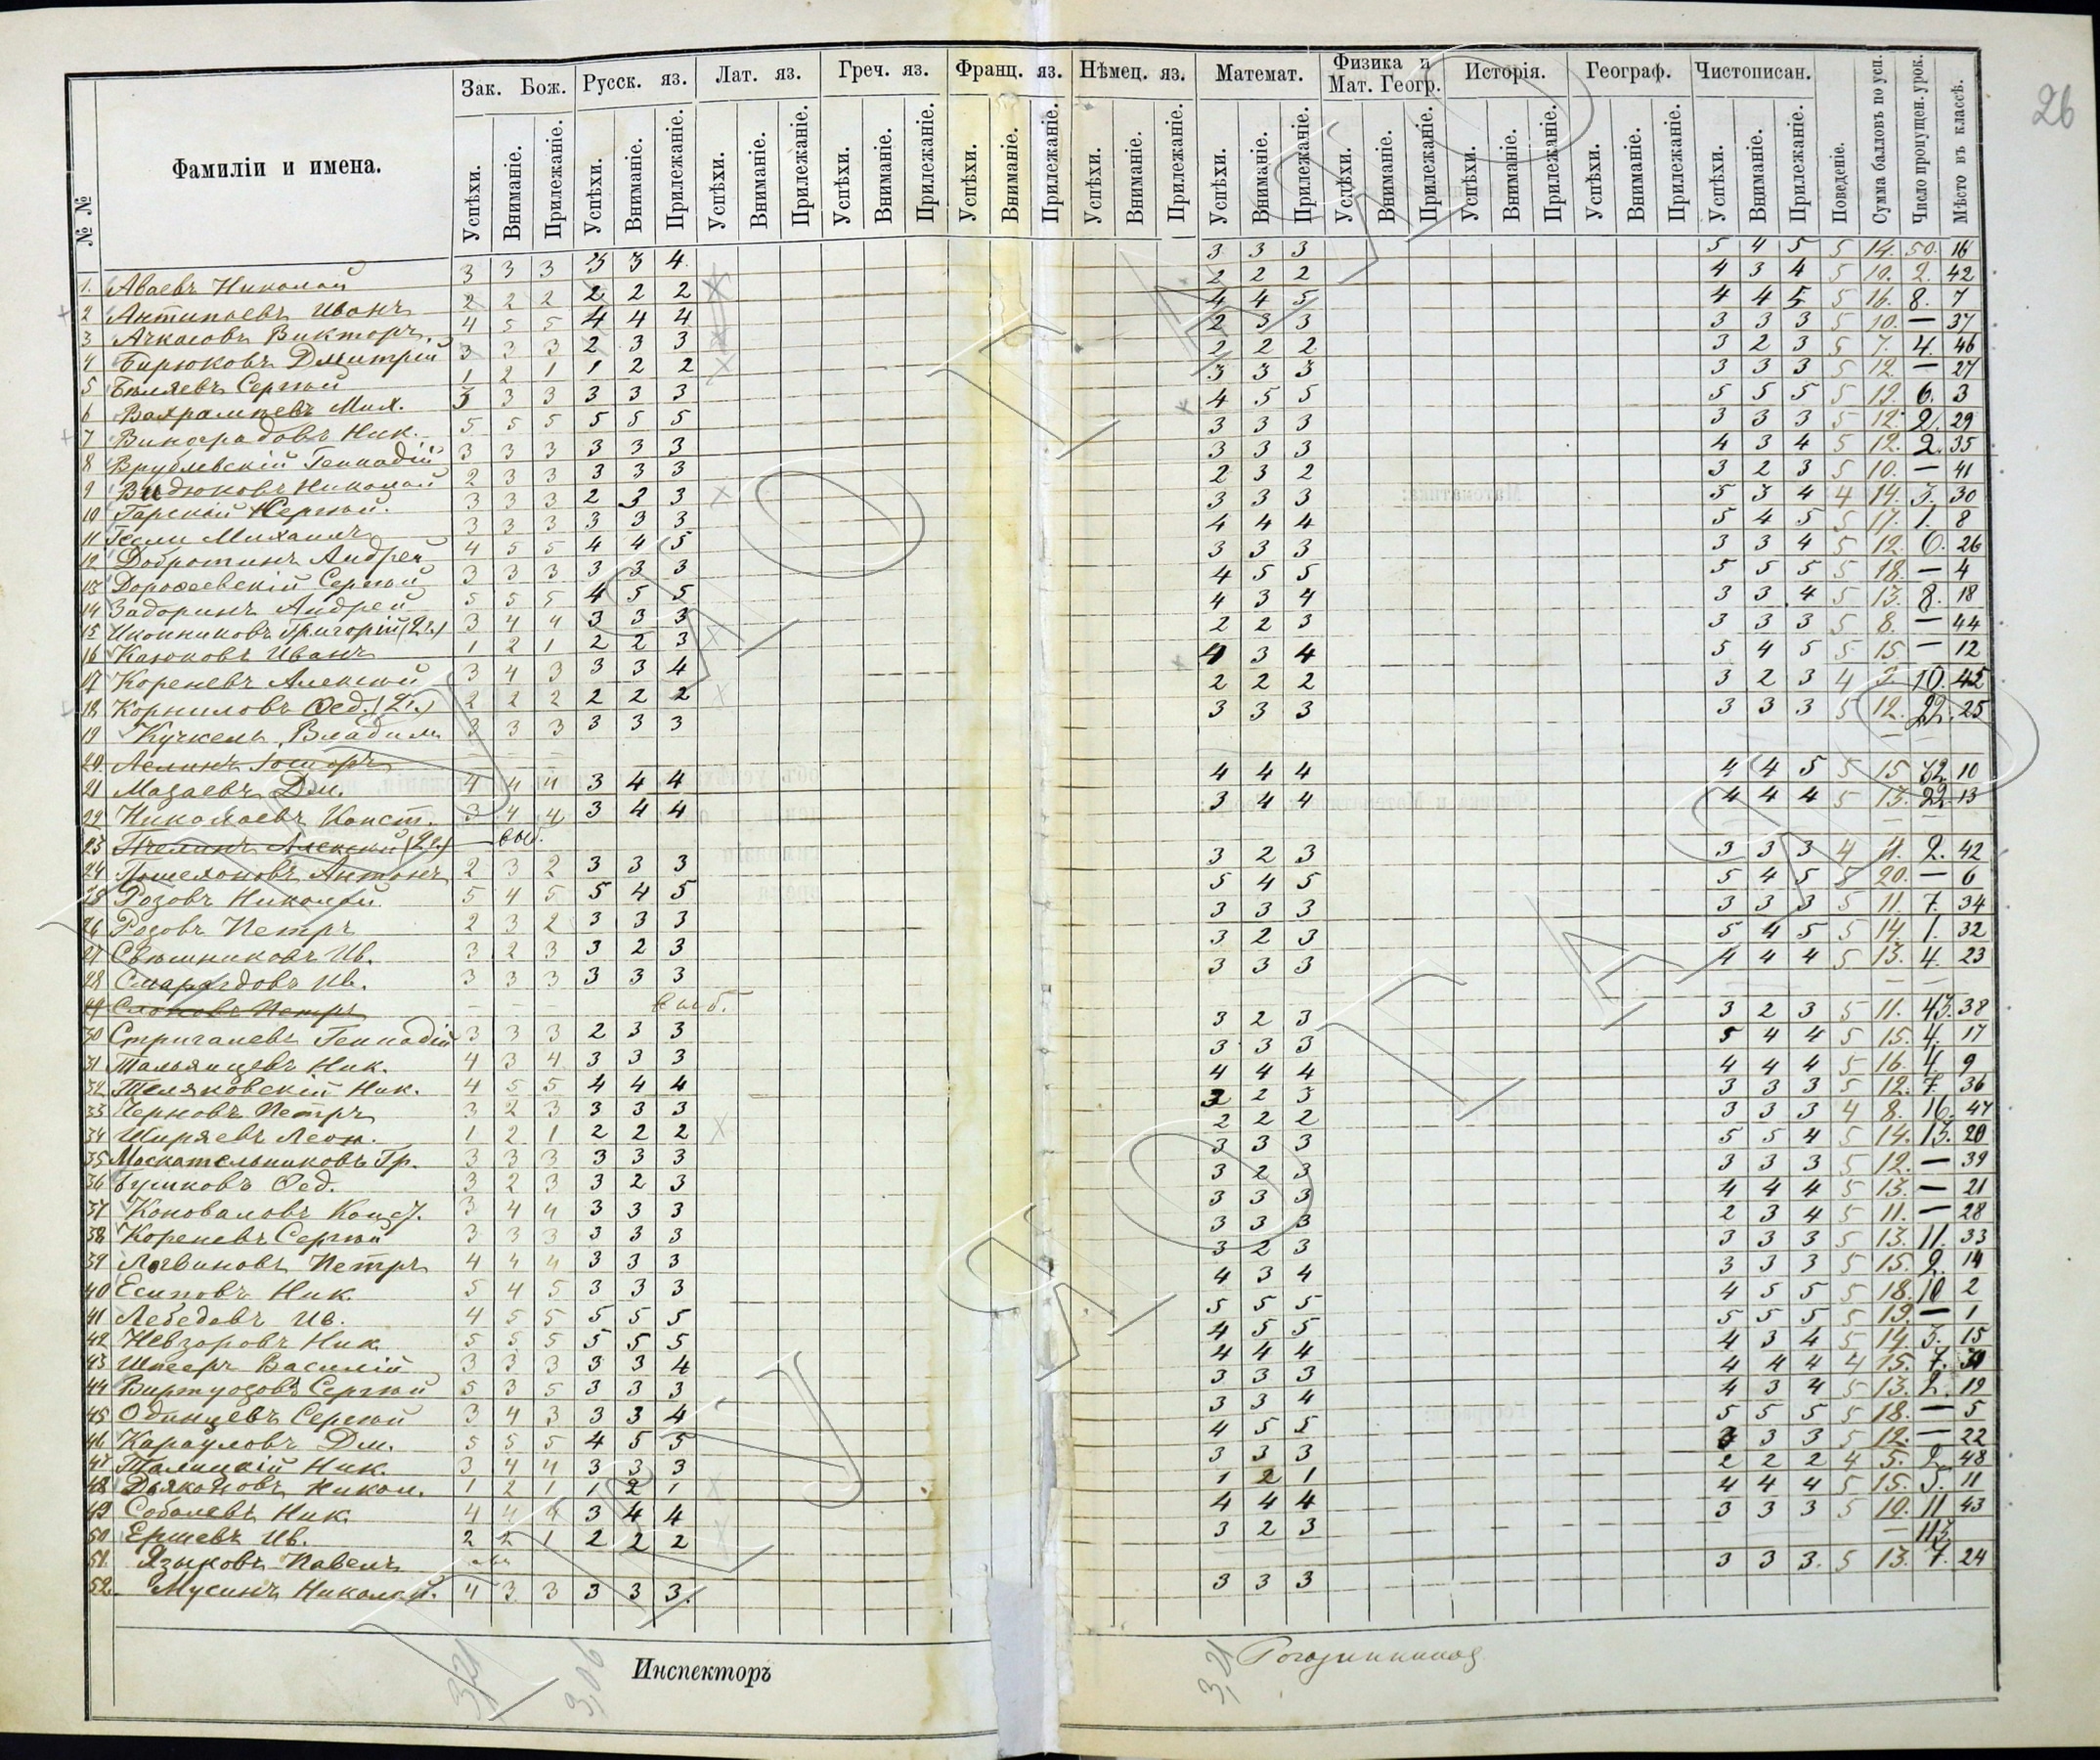 26
№ №	Фамиліи и имена.	Зак. Бож.	Русск. яз.	Лат. яз.	Греч. яз.	Франц. яз.	Нѣмец. яз.	Математ.	Физика и Мат. Геогр.	Исторія.	Географ.	Чистописан.	Поведеніе.	Сумма балловъ по усп.	Число пропущен. урок.	Мѣсто въ классѣ.
Успѣхи. Вниманіе. Прилежаніе. Успѣхи. Вниманіе. Прилежаніе. Успѣхи. Вниманіе. Прилежаніе. Успѣхи. Вниманіе. Прилежаніе. Успѣхи. Вниманіе. Прилежаніе. Успѣхи. Вниманіе. Прилежаніе. Успѣхи. Вниманіе. Прилежаніе. Успѣхи. Вниманіе. Прилежаніе. Успѣхи. Вниманіе. Прилежаніе. Успѣхи. Вниманіе. Прилежаніе. Успѣхи. Вниманіе. Прилежаніе.
1. Аваевъ Николай 3 3 3 3 3 4 3 3 3 5 4 5 5 14. 50. 16
2 Антипьевъ Иванъ 2 2 2 2 2 2 2 2 2 4 3 4 5 10. 2. 42
3 Ачкасовъ Викторъ. 4 5 5 4 4 4 4 4 5 4 4 5 5 16. 8. 7
4 Бирюковъ Дмитрій 3 3 3 2 3 3 2 3 3 3 3 3 5 10. — 37
5 Бѣляевъ Сергѣй 1 2 1 1 2 2 2 2 2 3 2 3 5 7. 4. 46
6 Вахрамѣевъ Мих. 3 3 3 3 3 3 3 3 3 3 3 3 5 12. — 27
7 Виноградовъ Ник. 5 5 5 5 5 5 4 5 5 5 5 5 5 19. 6. 3
8 Врублевскій Геннадій 3 3 3 3 3 3 3 3 3 3 3 3 5 12. 2. 29
9 Николай 2 3 3 3 3 3 3 3 3 4 3 4 5 12. 2. 35
10 Гарскій Сергѣй. 3 3 3 2 3 3 2 3 2 3 2 3 5 10. — 41
11 Михаилъ 3 3 3 3 3 3 3 3 3 5 3 4 4 14. 3. 30
12 Добротинъ Андрей 4 5 5 4 4 5 4 4 4 5 4 5 5 17. 1. 8
13 Дороѳеевскій Сергѣй 3 3 3 3 3 3 3 3 3 3 3 4 5 12. 6. 26
14 Задоринъ Андрей 5 5 5 4 5 5 4 5 5 5 5 5 5 18. — 4
15 Иконниковъ Григорій (2 г.) 3 4 4 3 3 3 4 3 4 3 3 4 5 13. 8. 18
16 Каюковъ Иванъ 1 2 1 2 2 3 2 2 3 3 3 3 5 8. — 44
17 Кореневъ Алексѣй 3 4 3 3 3 4 4 3 4 5 4 5 5 15 — 12
18 Корниловъ Ѳед. (2 г.) 2 2 2 2 2 2 2 2 2 3 2 3 4 9. 10. 45
19 Кучкель Владим. 3 3 3 3 3 3 3 3 3 3 3 3 5 12. 22. 25
20.
21 Мазаевъ Дм. 4 4 4 3 4 4 4 4 4 4 4 5 5 15 32 10
22 Николаевъ Конст. 3 4 4 3 4 4 3 4 4 4 4 4 5 13. 22. 13
23 Пчелинъ Алексѣй (2 г.) выб.
24 Помелоновъ Антонъ 2 3 2 3 3 3 3 2 3 3 3 3 4 11. 2. 42
25 Розовъ Николай 5 4 5 5 4 5 5 4 5 5 4 5 5 20. — 6
26 Розовъ Петръ 2 3 2 3 3 3 3 3 3 3 3 3 5 11. 7. 34
27 Свѣшниковъ Ив. 3 2 3 3 2 3 3 2 3 5 4 5 5 14. 1. 32
28 Смарагдовъ Ив. 3 3 3 3 3 3 3 3 3 4 4 4 5 13. 4. 23
29 Слоновъ Петръ — — — выб.
30 Стригалевъ Геннадій 3 3 3 2 3 3 3 2 3 3 2 3 5 11. 43. 38
31 Тальянцевъ Ник. 4 3 4 3 3 3 3 3 3 5 4 4 5 15. 4. 17
32 Теляковскій Ник. 4 5 5 4 4 4 4 4 4 4 4 4 5 16. 4 9
33 Черновъ Петръ 3 2 3 3 3 3 3 2 3 3 3 3 5 12. 7. 36
34 Ширяевъ Леон. 1 2 1 2 2 2 2 2 2 3 3 3 4 8. 16. 47
35 Москательниковъ Гр. 3 3 3 3 3 3 3 3 3 5 5 4 5 14. 13. 20
36 Ѳед. 3 2 3 3 2 3 3 2 3 3 3 3 5 12. — 39
37 Коноваловъ 3 4 4 3 3 3 3 3 3 4 4 4 5 13. — 21
38 Кореневъ Сергѣй 3 3 3 3 3 3 3 3 3 2 3 4 5 11. — 28
39 Логвиновъ Петръ 4 4 4 3 3 3 3 2 3 3 3 3 5 13. 11. 33
40 Есиповъ Ник. 5 4 5 3 3 3 4 3 4 3 3 3 5 15. 2. 14
41 Лебедевъ Ив. 4 5 5 5 5 5 5 5 5 4 5 5 5 18. 10 2
42 Невзоровъ Ник. 5 5 5 5 5 5 4 5 5 5 5 5 5 19. — 1
43 Шпееръ Василій 3 3 3 3 3 4 4 4 4 4 3 4 5 14. 3. 15
44 Виртуозовъ Сергѣй 5 3 5 3 3 3 3 3 3 4 4 4 4 15. 7. 31
45 Одинцевъ Сергѣй 3 4 3 3 3 4 3 3 4 4 3 4 5 13. 2. 19
46 Карауловъ Дм. 5 5 5 4 5 5 4 5 5 5 5 5 5 18. — 5
47 Талицкій Ник. 3 4 4 3 3 3 3 3 3 3 3 3 5 12. — 22
48 Дьяконовъ Никол. 1 2 1 1 2 1 1 2 1 2 2 2 4 5. 2. 48
49 Соболевъ Ник. 4 4 4 3 4 4 4 4 4 4 4 4 5 15. 5. 11
50 Ершевъ Ив. 2 2 1 2 2 2 3 2 3 3 3 3 5 10. 11 43
51. Языковъ Павелъ — 113.
52. Мусинъ Николай. 4 3 3 3 3 3. 3 3 3 3 3 3. 5 13. 7. 24
3,21
3,06
3,21
Инспекторъ